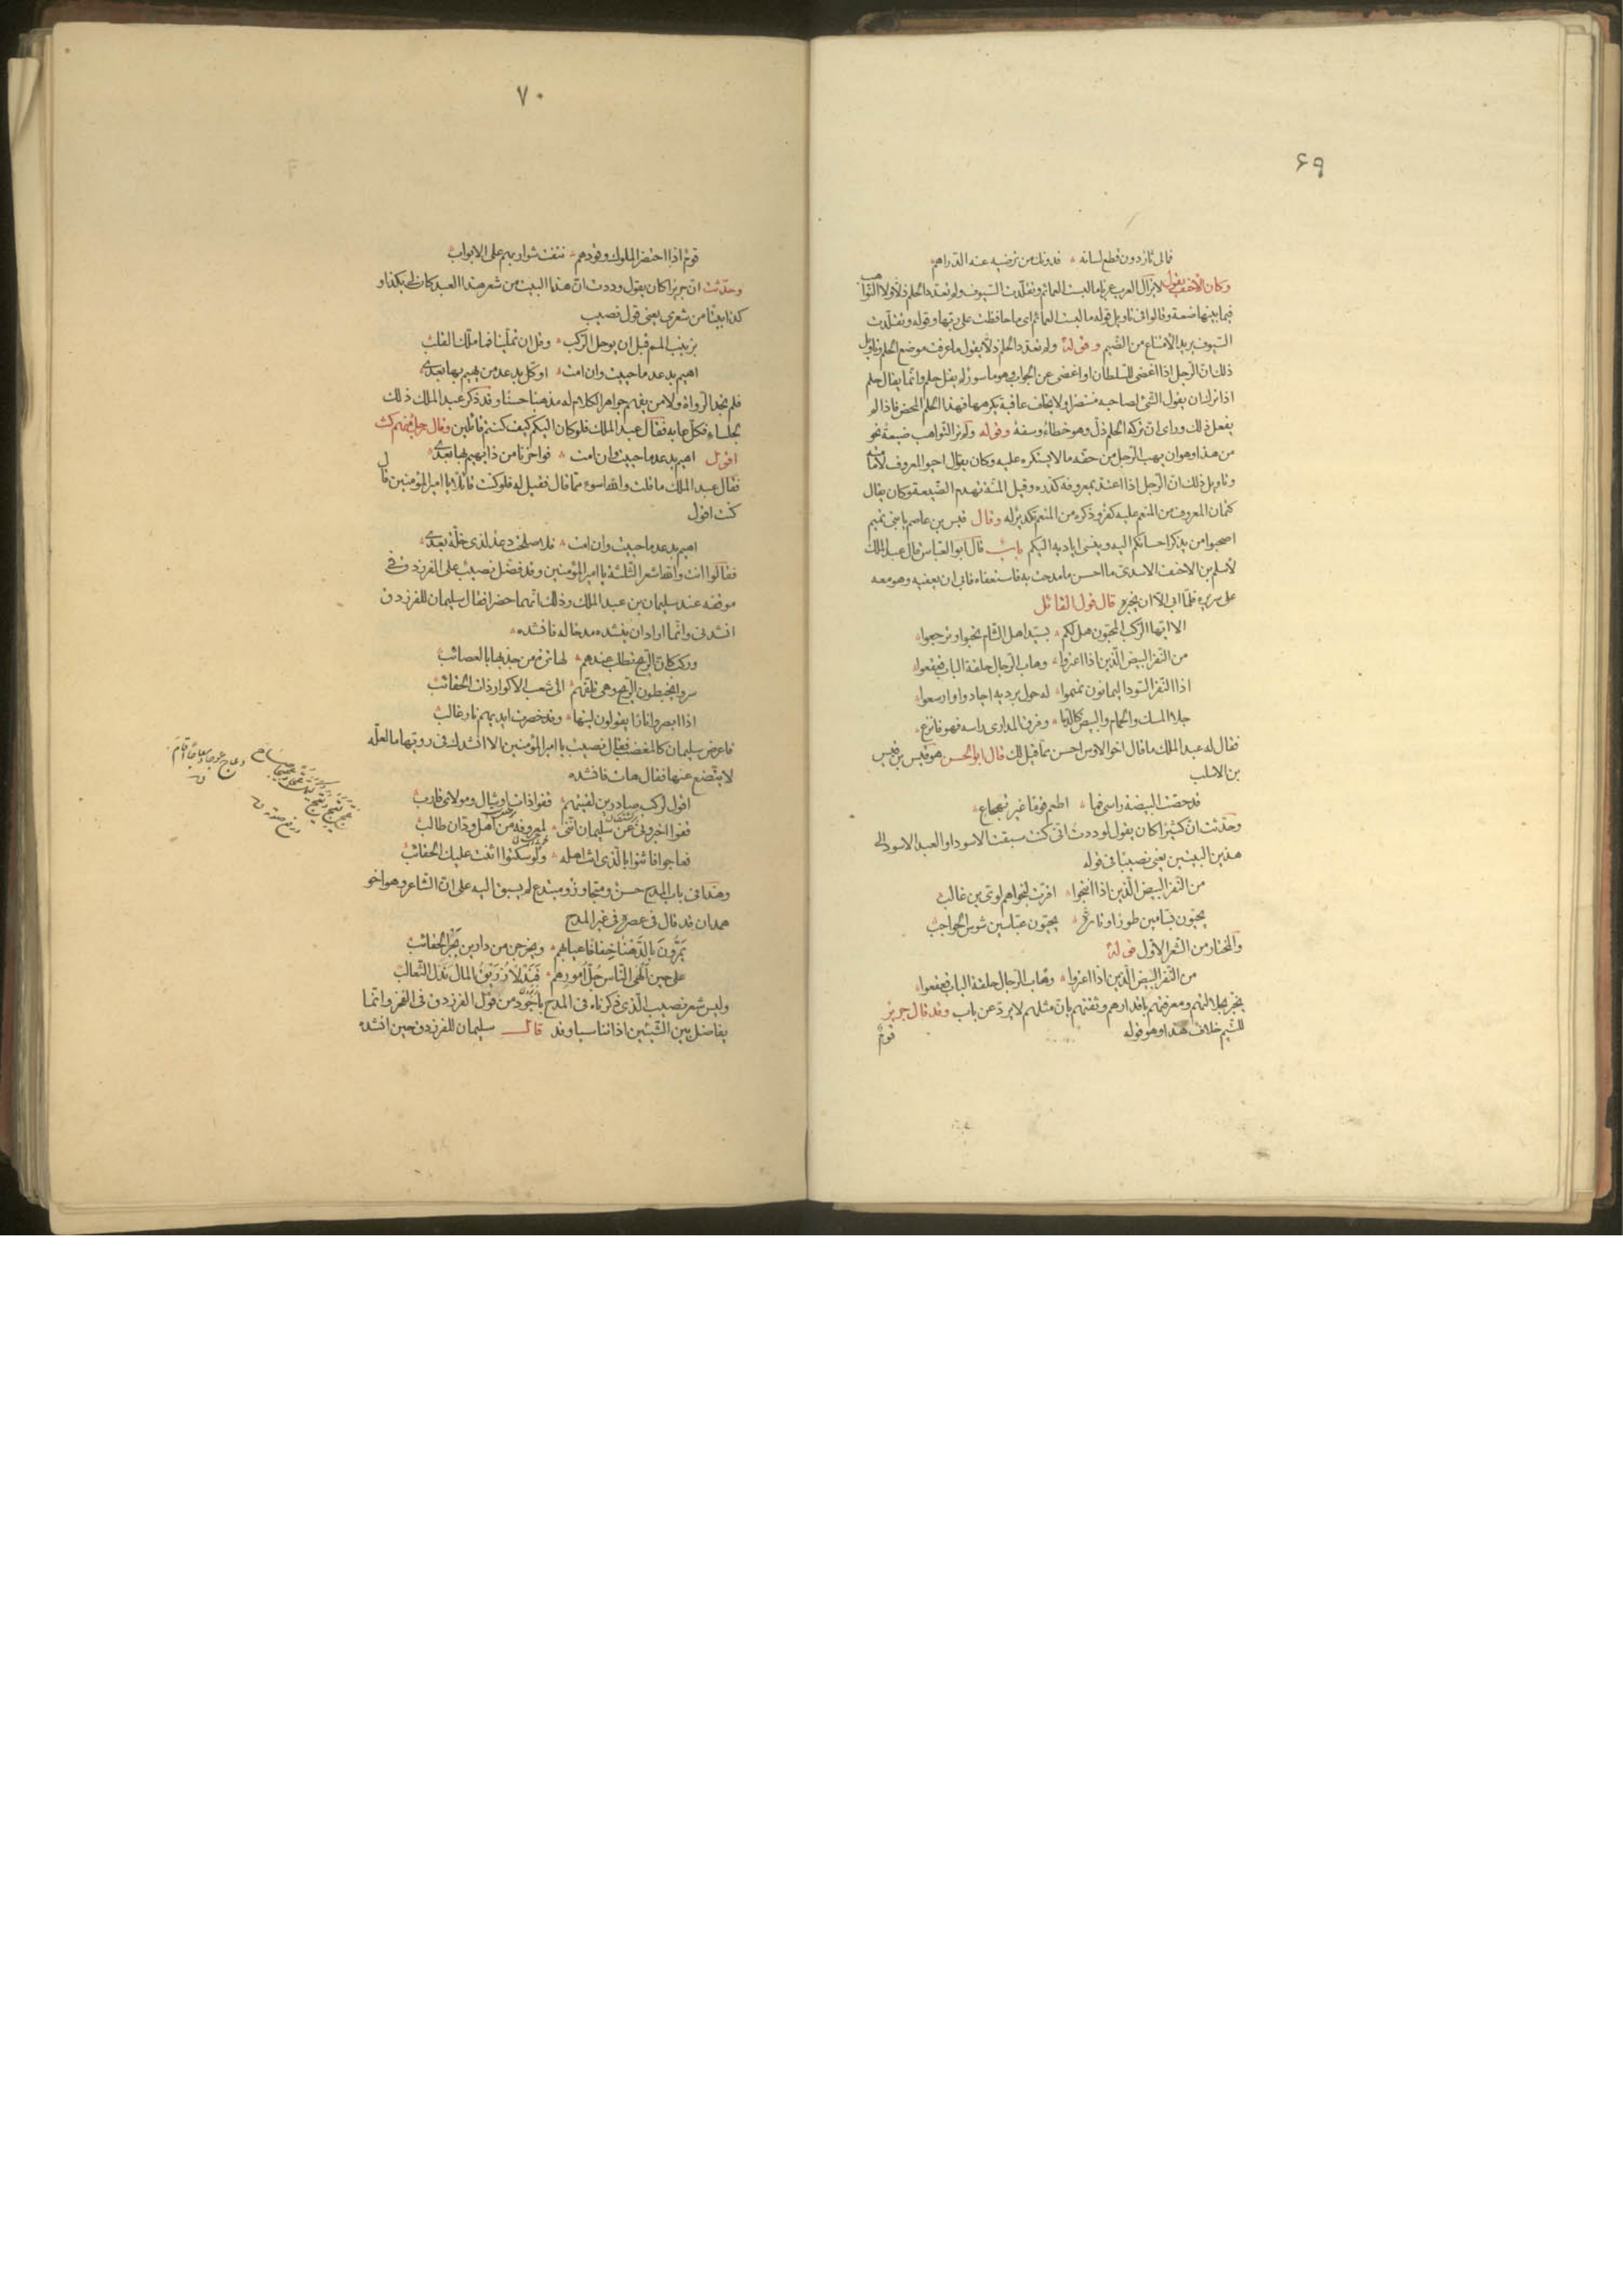 ۶۹
فمالى ثار دون قطع لسانه فدونك من ترضيه عنه الدراهم
وكان الاحنف يقول لا يزال العرب عربا ما لبست العمائم وتقلدت السيوف ولم تعدد الحلم ذلا ولا التواهب
فيما بينها ضعة وقالوا فى تاويل قوله ما لبست العمائم اى ما حافظت على زيها وقوله وتقلدت
السيوف يريد الامتناع من الضيم وقوله ولم تعدد الحلم ذلا يقول ما عرفت موضع الحلم وتاويل
ذلك ان الرجل اذا اغضى للسلطان او اغضى عن الجواب وهو ماسور لم يقل حلم وانما يقال حلم
اذا ترك ان يقول الشئ لصاحبه منتصرا ولا يخاف عاقبة يكرهها فهذا الحلم المحض فاذا لم
يفعل ذلك وراى ان تركه الحلم ذل وهو خطاء وسفه وقوله ولم تر التواهب ضعة نحو
من هذا وهو ان يهب الرجل من حقه ما لا يستكره عليه وكان يقول احيوا المعروف باماتته
وتاويل ذلك ان الرجل اذا اعتد بمعروفه كدره وقيل المنة تهدم الصنيعة وكان يقال
كتمان المعروف من المنعم عليه كفر وذكره من المنعم تكدير له وقال قيس بن عاصم يا بنى تميم
اصحبوا من يذكر احسانكم اليه وينسى اياديه اليكم باب قال ابو العباس قال عبد الملك
لاسلم بن الاحنف الاسدى ما احسن ما مدحت به فاستعفاه فابى ان يعفيه وهو معه
على سريره فلما ابى الا ان يخبره قال قول القائل
الا ايها الركب المخبون هل لكم بسيد اهل الشام تحبوا وترجعوا
من النفر البيض الذين اذا اعتزوا وهاب الرجال حلقة الباب قعقعوا
اذا النفر السود اليمانون نمنموا له حول برديه اجادوا واوسعوا
جلا المسك والحمام والبيض كالدما وفرق المدارى راسه فهو فانزع
فقال له عبد الملك ما قال اخو الاوس احسن مما قيل لك قال ابو الحسن هو قيس بن قيس
بن الاسلت
قد حصت البيضة راسى فما اطعم نوما غير تهجاع
وحدثت ان كثيرا كان يقول لوددت انى كنت سبقت الاسود او العبد الاسود الى
هذين البيتين يعنى نصيبا فى قوله
من النفر البيض الذين اذا انتجوا اقرت لنجواهم لوى بن غالب
يحيون بسامين طورا وتارة يحيون عباسين شوس الحواجب
والمختار من الشعر الاول قوله
من النفر البيض الذين اذا اعتزوا وهاب الرجال حلقة الباب قعقعوا
يخبر بجلالتهم ومعرفتهم باقدارهم وثقتهم بان مثلهم لا يرد عن باب وقد قال جرير
للتيم خلاف هذا وهو قوله
قوم
۷۰
قوم اذا احتضر الملوك وفودهم نتفت شواربهم على الابواب
وحدثت ان جريرا كان يقول وددت ان هذا البيت من شعر هذا العبد كان لى بكذا و
كذا بيتا من شعرى يعنى قول نصيب
بزينب المم قبل ان يرحل الركب وقل ان تملينا فما ملك القلب
اهيم بدعد ما حييت وان امت اوكل بدعد من يهيم بها بعدى
فلم تجد الرواة ولا من يفهم جواهر الكلام له مذهبا حسنا وقد ذكر عبد الملك ذلك
لجلسائه فكل عابه فقال عبد الملك فلو كان اليكم كيف كنتم قائلين وقال رجل منهم كنت
اقول اهيم بدعد ما حييت وان امت فواحزنا من ذا يهيم بها بعدى
فقال عبد الملك ما قلت والله اسوء مما قال فقيل له فلو كنت قائلا يا امير المؤمنين قال
كنت اقول
اهيم بدعد ما حييت وان امت فلا صلحت دعد لذى خلة بعدى
فقالوا انت والله اشعر الثلثة يا امير المؤمنين وقد فضل نصيب على الفرزدق فى
موقفه عند سليمان بن عبد الملك وذلك انهما حضرا فقال سليمان للفرزدق
انشدنى وانما اراد ان ينشده مدحا له فانشده
وركب كان الريح تطلب عندهم لها ترة من جذبها بالعصائب
سروا يخبطون الريح وهى تلفهم الى شعب الاكوار ذات الحقائب
اذا ابصروا نارا يقولون ليتها وقد خصرت ايديهم نار غالب
فاعرض سليمان كالمغضب فقال نصيب يا امير المؤمنين الا انشدك فى رويها ما لعله
لا يتضع عنها فقال هات فانشده
اقول لركب صادرين لقيتهم قفوا ذات اوشال ومولاك قارب
قفوا اخبرونى عن سليمان اننى لمعروفه من اهل ودان طالب
فعاجوا فاثنوا بالذى انت اهله ولو سكتوا اثنت عليك الحقائب
وهذا فى باب المدح حسن ومتجاوز ومبتدع لم يسبق اليه على ان الشاعر وهو اخو
همدان قد قال فى عصره فى غير المدح
يمرون بالدهنا خفافا عيابهم ويخرجن من دارين بجر الحقائب
على حين الهى الناس جل امورهم فندلا زريق المال ندل الثعالب
وليس شعر نصيب الذى ذكرناه فى المدح باجود من قول الفرزدق فى الفخر وانما
يفاضل بين الشيئين اذا تناسبا وقد قال سليمان للفرزدق حين انشده